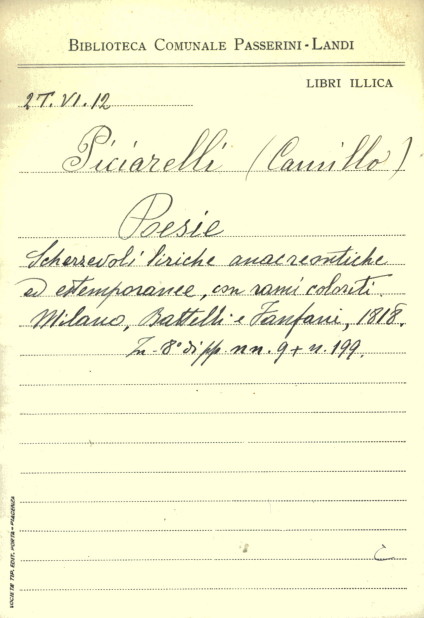 BIBLIOTECA COMUNALE PASSERINI-LANDI
LIBRI ILLICA
2T.VI.12
Piciarelli (Camillo)
Poesie
Scherzevoli liriche anacreontiche
ed estemporanee, con rami coloriti.
Milano, Battelli e Fanfani, 1818.
In-8° di pp. nn. 9 + n. 199.
SOCIETÀ TIP. EDIT. PORTA - PIACENZA